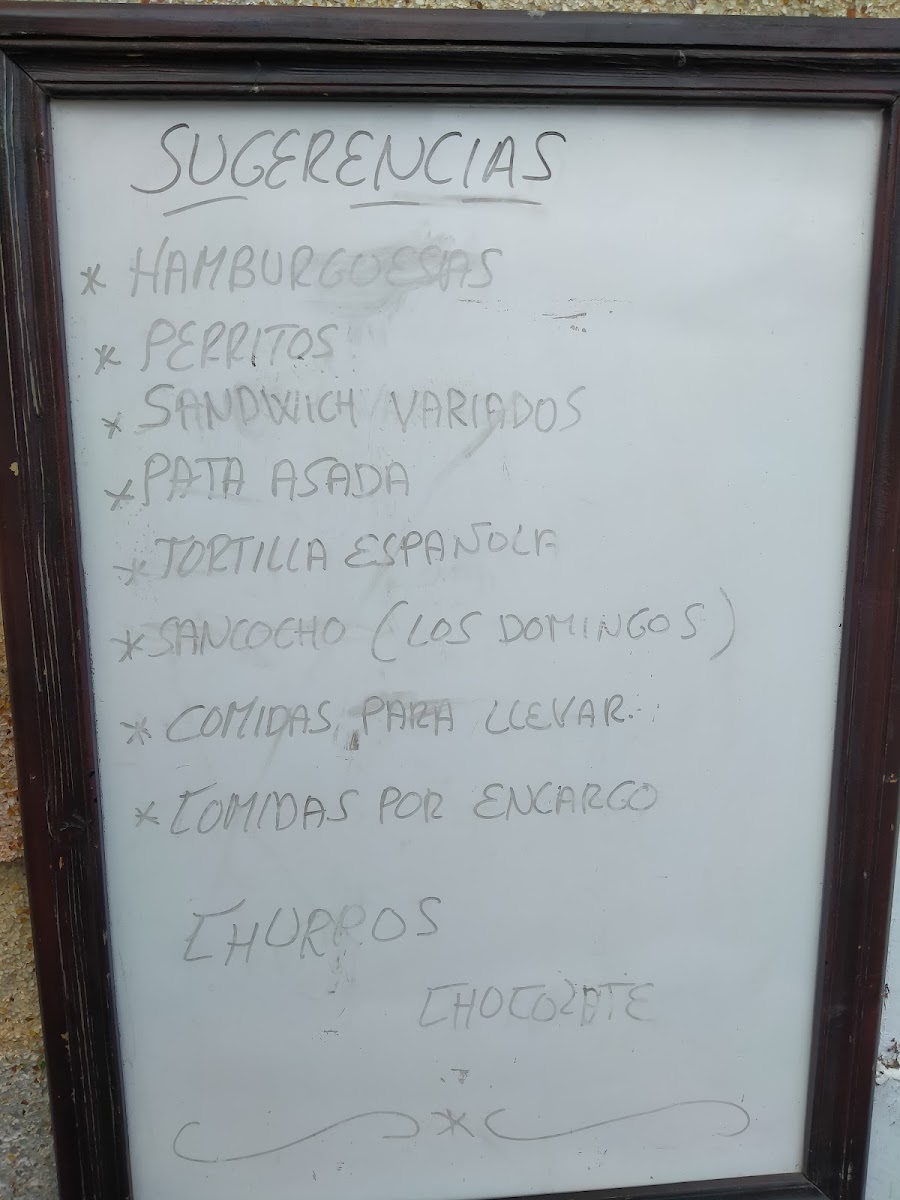 SUGERENCIAS
* HAMBURGUESAS
* PERRITOS
* SANDWICH VARIADOS
* PATA ASADA
* TORTILLA ESPAÑOLA
* SANCOCHO (LOS DOMINGOS)
* COMIDAS PARA LLEVAR.
* COMIDAS POR ENCARGO
CHURROS
CHOCOLATE